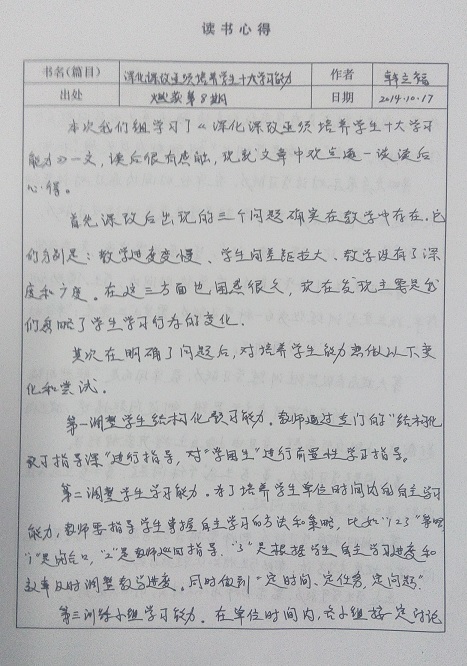 读书心得
书名(篇目) 深化课改亟须培养学生十大学习能力 作者 韩立福
出处 第8期 日期 2014.10.17
本次我们组学习了《深化课改亟须培养学生十大学习
能力》一文,读后很有感触,现就文章中观点逐一谈谈读后
心得。
首先课改后出现的三个问题确实在教学中存在,它
们分别是:教学进度变慢、学生间差距拉大、教学没有了深
度和广度。在这三方面也困惑很久,现在发现主要是我
们忽略了学生学习行为的变化.
其次在明确了问题后,对培养学生能力想做以下变
化和尝试.
第一调整学生结构化预习能力。教师通过专门的"结构化
预习指导课"进行指导,对"学困生"进行前置性学习指导。
第二调整学生学习能力。为了培养学生单位时间内的自主学习
能力,教师要指导学生掌握自主学习的方法和策略,比如"123"策略
"1"是闭合口,"2"是教师巡回指导,"3"是根据学生自主学习进度和
效率及时调整教学进度。同时做到"定时间、定任务,定问题"
第三训练小组学习能力。在单位时间内,各小组按定讨论